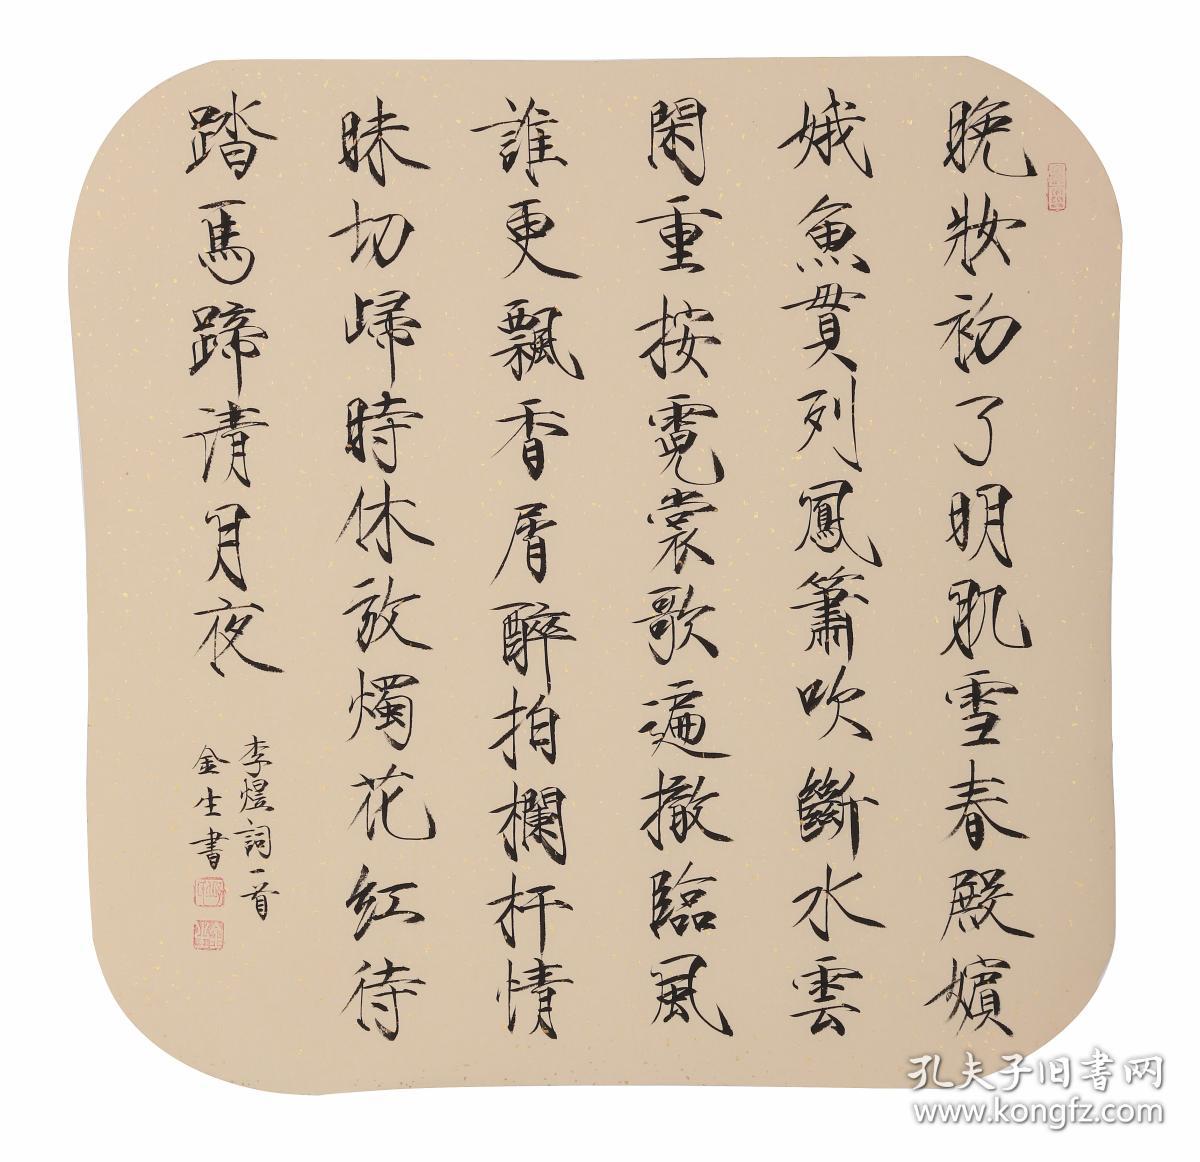 晚妝初了明肌雪春殿嬪
娥魚貫列鳳簫吹斷水雲
閑重按霓裳歌遍撤臨風
誰更飄香屑醉拍欄杆情
昧切歸時休放燭花紅待
踏馬蹄清月夜
李煜詞一首
金生書
孔夫子旧书网
www.kongfz.com